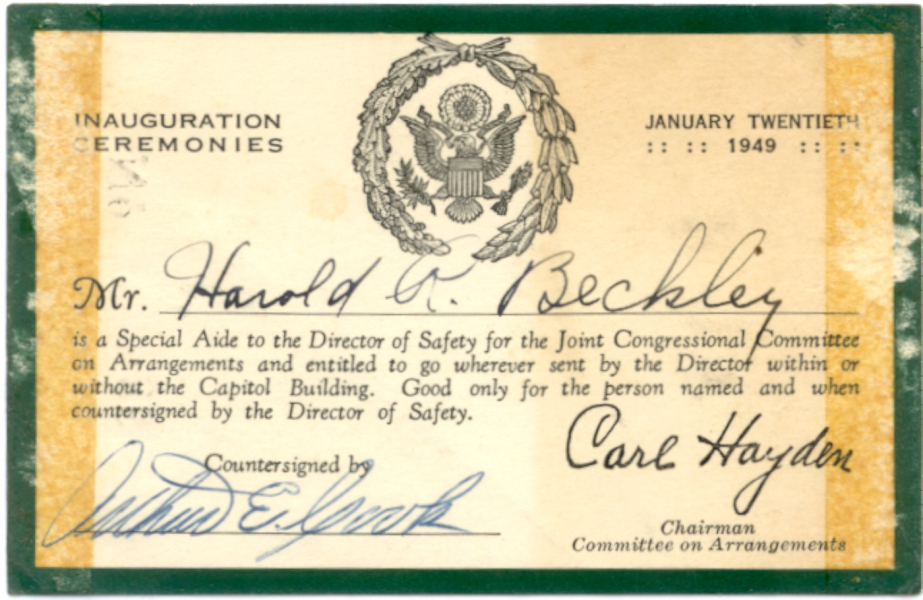 INAUGURATION
CEREMONIES
JANUARY TWENTIETH
:: :: 1949 :: ::
Mr. Harold R. Beckley
is a Special Aide to the Director of Safety for the Joint Congressional Committee
on Arrangements and entitled to go wherever sent by the Director within or
without the Capitol Building. Good only for the person named and when
countersigned by the Director of Safety.
Carl Hayden
Countersigned by
Arthur E. Cook
Chairman
Committee on Arrangements